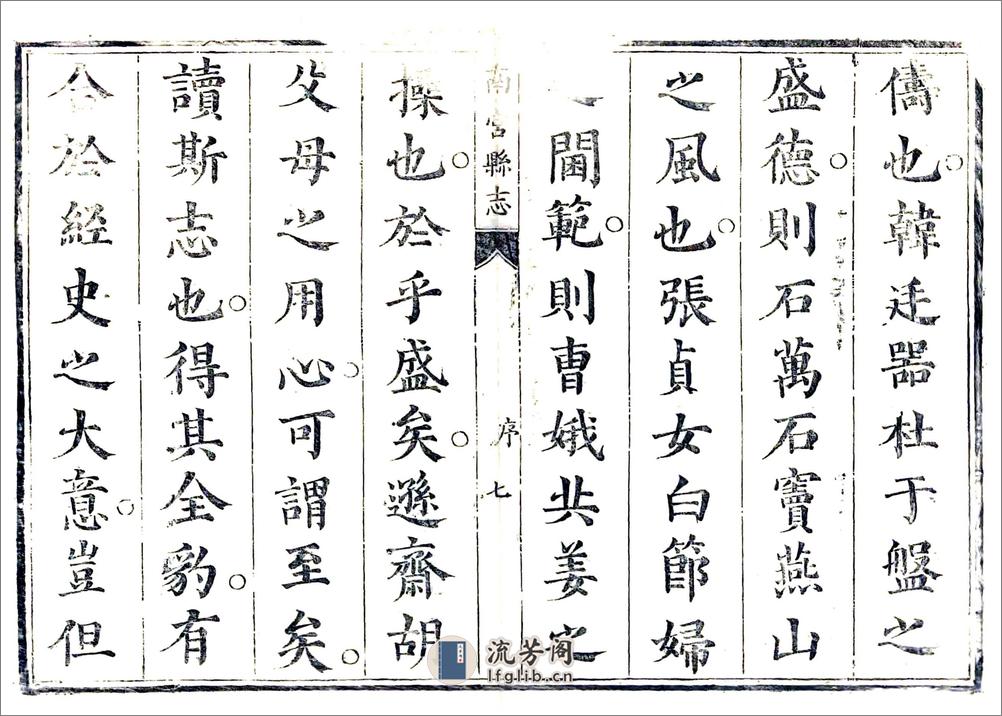 儔也韓廷器杜于盤之
盛德則石萬石竇燕山
之風也張貞女白節婦
閫範則曹娥共姜之
南宮縣志
序
七
操也於乎盛矣遜齋胡
父母之用心可謂至矣
讀斯志也得其全豹有
合於經史之大意豈但
流芳阁
lfglib.cn